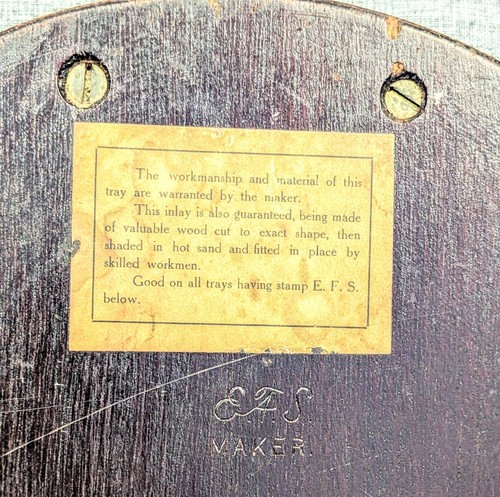 The workmanship and material of this
tray are warranted by the maker.
This inlay is also guaranteed, being made
of valuable wood cut to exact shape, then
shaded in hot sand and fitted in place by
skilled workmen.
Good on all trays having stamp E. F. S.
below.
E.F.S
MAKER